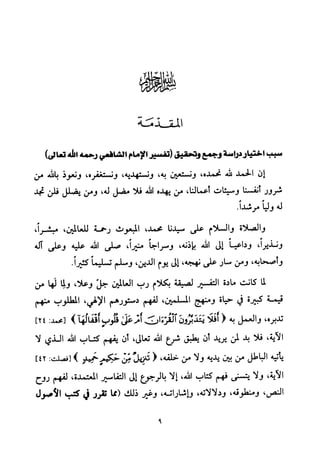 بسم الله الرحمن الرحيم
المقدمة
سبب اختيار دراسة وجمع وتحقيق (تفسير الإمام الشافعي رحمه الله تعالى)
إن الحمد لله نحمده، ونستعين به، ونستهديه، ونستغفره، ونعوذ بالله من
شرور أنفسنا وسيئات أعمالنا، من يهدي الله فلا مضل له، ومن يضلل فلن تجد
له ولياً مرشداً.
والصلاة والسلام على سيدنا محمد، المبعوث رحمة للعالمين، مبشراً،
ونذيراً، وداعياً إلى الله بإذنه، وسراجاً منيراً، صلى الله عليه وعلى آله
وأصحابه، ومن سار على نهجه، إلى يوم الدين، وسلم تسليماً كثيراً.
لما كانت مادة التفسير لصيقة بكلام رب العالمين جلَّ وعلا، ولما لها من
قيمة كبرى في حياة ومنهج المسلمين، فهم دستورهم الإلهي، والمطلوب منهم
تدبره، والعمل به ﴿أَفَلَا يَتَدَبَّرُونَ الْقُرْآنَ أَمْ عَلَى قُلُوبٍ أَقْفَالُهَا﴾ [محمد: ٢٤]
الآية، فلا بد لمن يريد أن يطبق شرع الله تعالى، أن يفهم كتاب الله الذي لا
يأتيه الباطل من بين يديه ولا من خلفه، ﴿تَنْزِيلٌ مِنْ حَكِيمٍ حَمِيدٍ﴾ [فصلت: ٤٢]
الآية، ولا يتسنى فهم كتاب الله، إلا بالرجوع إلى التفاسير المعتمدة، لفهم روح
النص، ومنطوقه، ودلالاته، وإشاراته، وغير ذلك (مما تقرر في كتب الأصول
٩